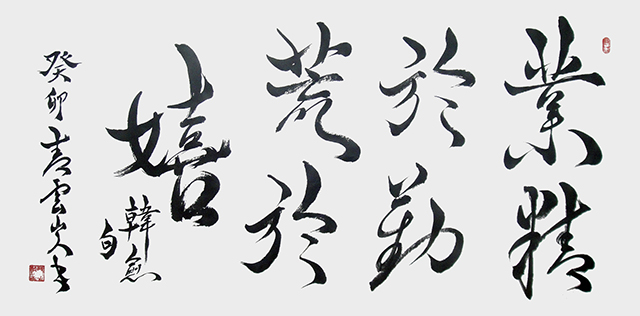 業精
於勤
荒於
嬉
韓愈
句
癸卯青雲山人書